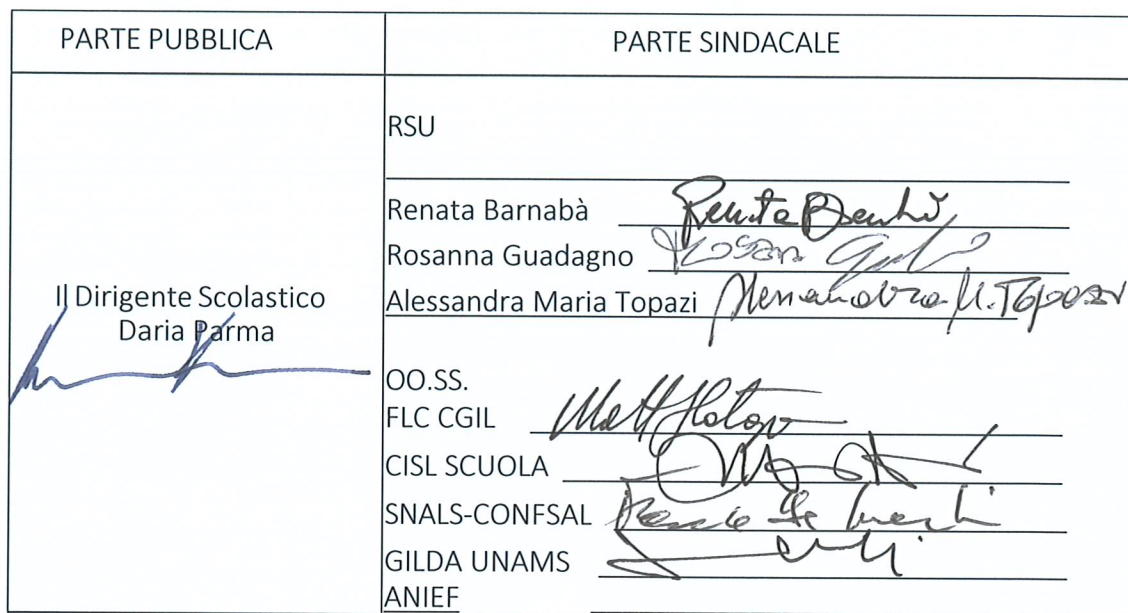 PARTE PUBBLICA
PARTE SINDACALE
Il Dirigente Scolastico
Daria Parma
RSU
Renata Barnabà Renata
Rosanna Guadagno
Alessandra Maria Topazi Alessandra M. Topazi
OO.SS.
FLC CGIL
CISL SCUOLA
SNALS-CONFSAL
GILDA UNAMS
ANIEF